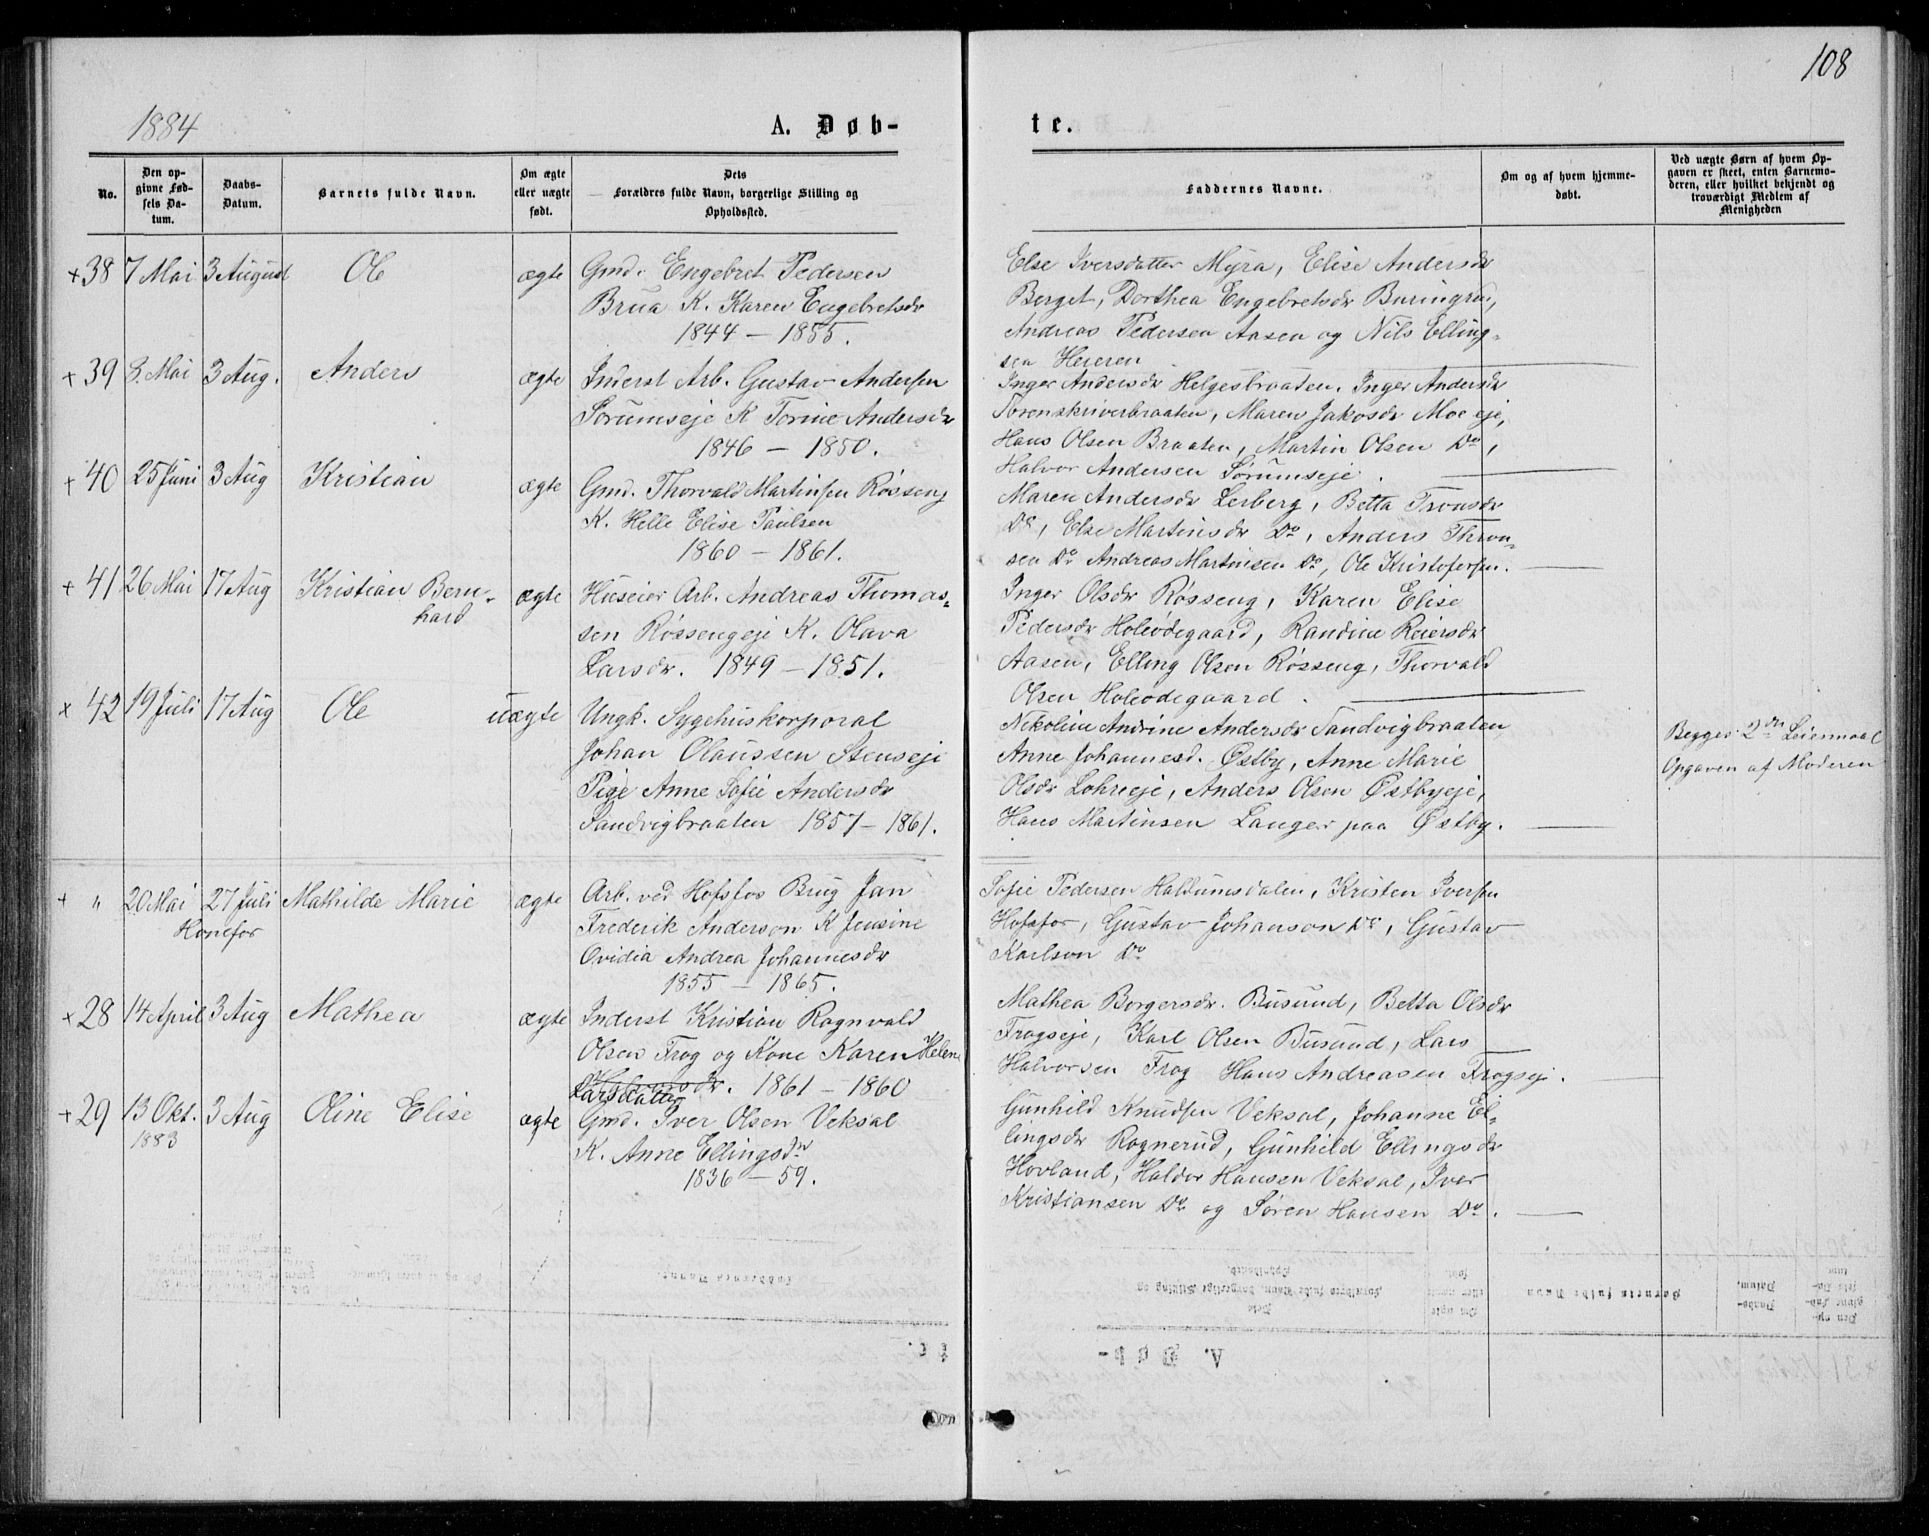 108
1884
A. Døb-
te.
No.
Den op-
givne Fød-
sels Da-
tum.
Daabs-
Datum.
Barnets fulde Navn.
Om ægte
eller uægte
født.
Dets
Forældres fulde Navn, borgerlige Stilling og
Opholdssted.
Faddernes Navne.
Om og af hvem hjemme-
døbt.
Ved uægte Børn af hvem Op-
gaven er skeet, enten Barnemo-
deren, eller hvilket bekjendt og
troværdigt Medlem af
Menigheden
+38 7 Mai 3 August Ole ægte Gmd. Engebret Pedersen
Brua K. Karen Engebretsdr
1844 - 1855.
Else Iversdatter Myra, Elise Andersdr
Berget, Dorthea Engebretsdr Buringrud,
Andreas Pedersen Aasen og Nils Elling-
sen Heieren
+39 8. Mai 3 Aug. Anders ægte Inderst Arb. Gustav Andersen
Sørumseje K Torine Andersdr
1846 - 1850.
Inger Andersdr Helgesbraaten. Inger Andersdr
Sorenskriverbraaten, Maren Jakosdr Moe eje,
Hans Olsen Braaten, Martin Olsen Do,
Halvor Andersen Sørumseje.
+40 25 Juni 3 Aug Kristian ægte Gmd. Thorvald Martinsen Røsseng
K. Helle Elise Paulsen
1860 - 1861.
Maren Andersdr Lerberg, Betta Tronsdr
Do, Else Martinsdr Do, Anders Thron-
sen Do Andreas Martinsen Do, Ole Kristofersen.
+41 26 Mai 17 Aug Kristian Bern-
hard ægte Huseier Arb. Andreas Thomas-
sen Røssengeje K. Olava
Larsdr. 1849 - 1851.
Inger Olsdr Røsseng, Karen Elise
Pedersdr Holeødegaard, Randine Reiersdr
Aasen, Elling Olsen Røsseng, Thorvald
Olsen Holeødegaard.
x 42 19 Juli 17 Aug Ole uægte Ungk. Sygehuskorporal
Johan Olaussen Stenseje
Pige Anne Sofie Andersdr
Sandvigbraaten 1857 - 1861.
Nikoline Andrine Andersdr Sandvigbraaten
Anne Johannesd. Østby, Anne Marie
Olsdr Lohreje, Anders Olsen Østbyeje,
Hans Martinsen Langer paa Østby.
Begges 2det Leiermaal
Opgaven af Moderen
+ " 20 Mai 27 Juli Mathilde Marie ægte Arb. ved Hofsfos Brug Jan
Hønefos
Frederik Anderson K Jensine
Ovidia Andrea Johannesdr
1855 - 1865.
Sofie Pedersen Hallumsdalen, Kristen Iversen
Hofsfos, Gustav Johanson Do, Gustav
Karlson Do
x 28 14 April 3 Aug Mathea ægte Inderst Kristian Rognvald
Olsen Frog og Kone Karen Helene
Halvorsdr. 1861 - 1860
Larsdatter
Mathea Borgersdr. Busund, Betta Olsdr
Frogseje, Karl Olsen Busund, Lars
Halvorsen Frog Hans Andreasen Frogseje.
+29 13 Okt. 3 Aug Oline Elise ægte Gmd. Iver Olsen Veksal
1883
K. Anne Ellingsdr
1836 - 59.
Gunhild Knudsen Veksal, Johanne El-
lingsdr Rognerud, Gunhild Ellingsdr
Hovland, Haldor Hansen Veksal, Iver
Kristiansen Do og Søren Hansen Do.